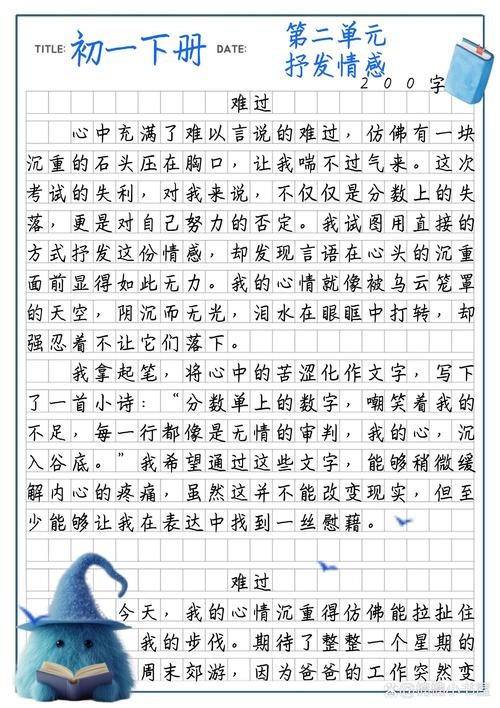 TITLE: 初一下册 DATE: 第二单元
抒发情感
200字
难过
心中充满了难以言说的难过，仿佛有一块
沉重的石头压在胸口，让我喘不过气来。这次
考试的失利，对我来说，不仅仅是分数上的失
落，更是对自己努力的否定。我试图用直接的
方式抒发这份情感，却发现言语在心头的沉重
面前显得如此无力。我的心情就像被乌云笼罩
的天空，阴沉而无光，泪水在眼眶中打转，却
强忍着不让它们落下。
我拿起笔，将心中的苦涩化作文字，写下
了一首小诗：“分数单上的数字，嘲笑着我的
不足，每一行都像是无情的审判，我的心，沉
入谷底。”我希望通过这些文字，能够稍微缓
解内心的疼痛，虽然这并不能改变现实，但至
少能够让我在表达中找到一丝慰藉。
难过
今天，我的心情沉重得仿佛能拉扯住
我的步伐。期待了整整一个星期的
周末郊游，因为爸爸的工作突然变